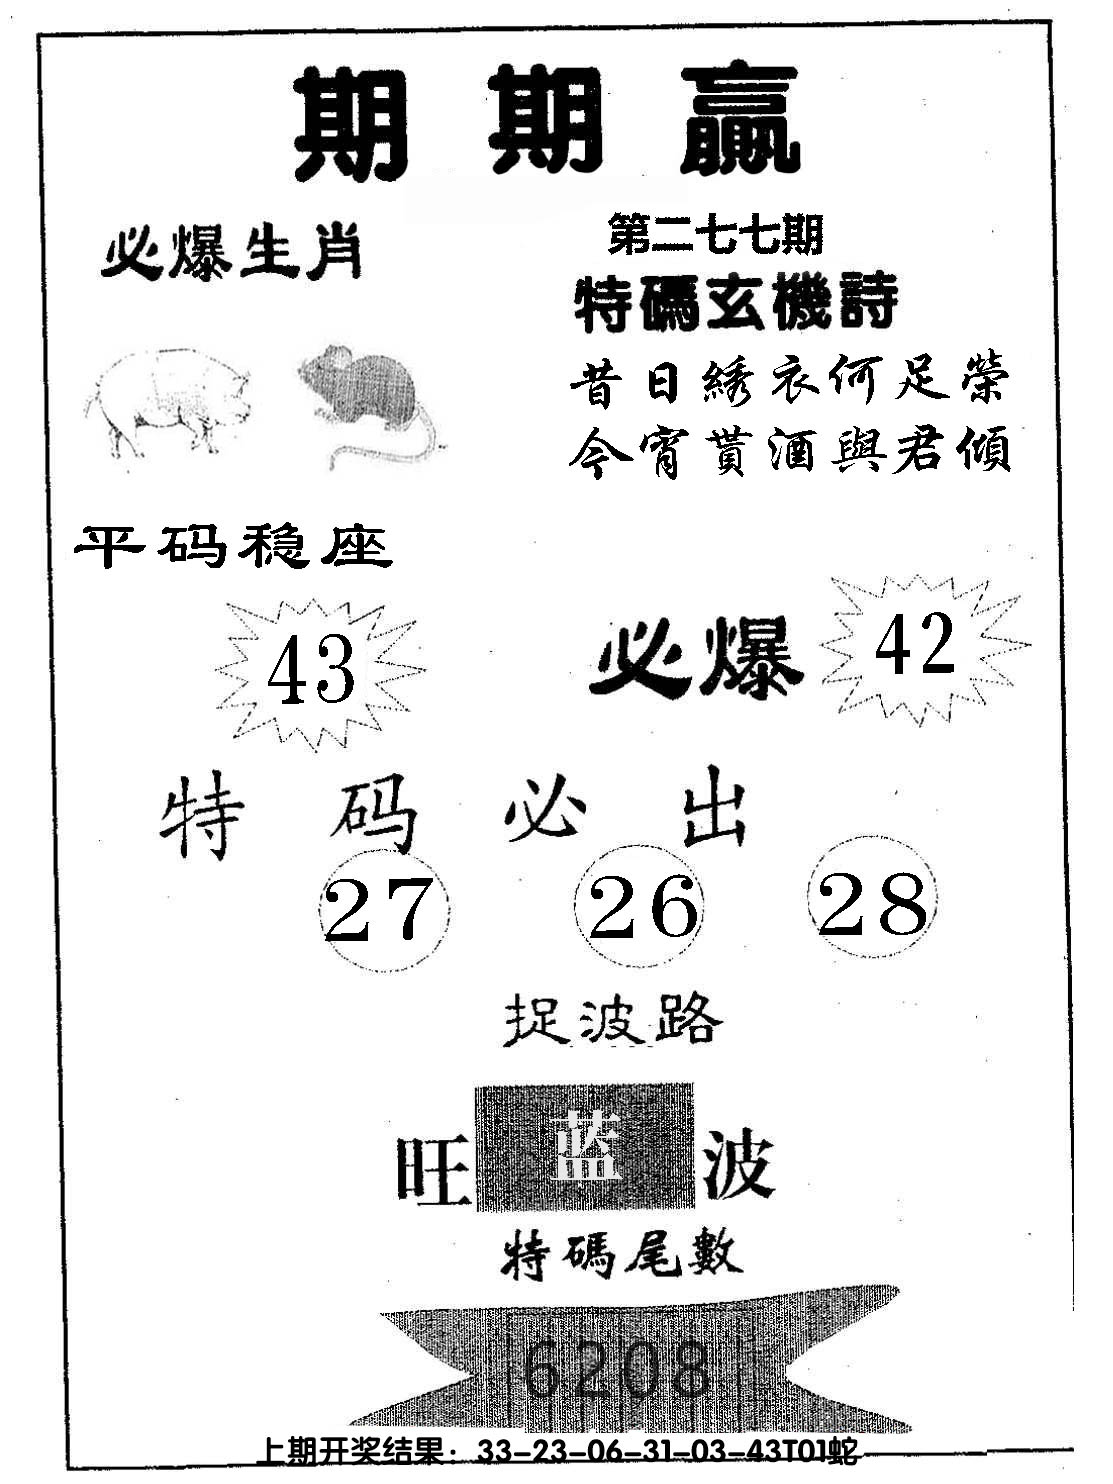 期期赢
必爆生肖
第二七七期
特碼玄機詩
昔日綉衣何足榮
今宵貰酒與君傾
平码稳座
43
必爆 42
特码必出
27 26 28
捉波路
旺 蓝 波
特碼尾數
6208
上期开奖结果：33-23-06-31-03-43T01蛇